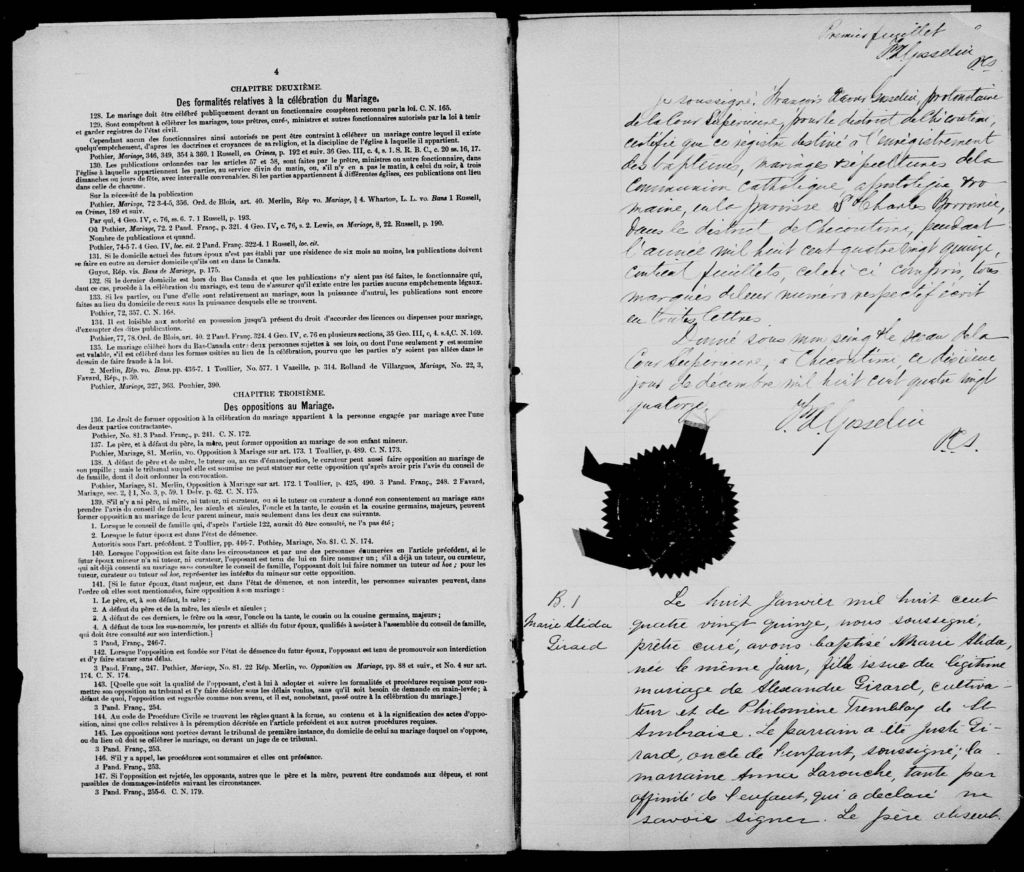 4
CHAPITRE DEUXIÈME.
Des formalités relatives à la célébration du Mariage.
128. Le mariage doit être célébré publiquement devant un fonctionnaire compétent reconnu par la loi. C. N. 165.
129. Sont compétent à célébrer les mariages, tous prêtres, curés, ministres et autres fonctionnaires autorisés par la loi à tenir
et garder registres de l'état civil.
Cependant aucun des fonctionnaires ainsi autorisés ne peut être contraint à célébrer un mariage contre lequel il existe
quelqu'empêchement, d'après les doctrines et croyances de sa religion, et la discipline de l'église à laquelle il appartient.
Pothier, Mariage, 346, 349, 354 à 360. 1 Russell, on Crimes, p. 192 et suiv. 36 Geo. III, c. 4, s. 1. S. R. B. C., c. 20 ss. 16, 17.
130. Les publications ordonnées par les articles 57 et 58, sont faites par le prêtre, ministre ou autre fonctionnaire, dans
l'église à laquelle appartiennent les parties, au service divin du matin, ou, s'il n'y en a pas le matin, à celui du soir, à trois
dimanches ou jours de fête, avec intervalle convenables. Si les parties appartiennent à différentes églises, ces publications ont lieu
dans celle de chacune.
Sur la nécessité de la publication
Pothier, Mariage, 72 3-4-5, 356. Ord. de Blois, art. 40. Merlin, Rép vo. Mariage, § 4. Wharton, L. L. vo. Bans 1 Russell,
on Crimes, 189 et suiv.
Par qui, 4 Geo. IV, c. 76, ss. 6. 7. 1 Russell, p. 193.
Où Pothier, Mariage, 72. 2 Pand. Franç., p. 321. 4 Geo. IV, c. 76, s. 2. Lewis, on Mariage, 8, 22. Russell, p. 190.
Nombre de publications et quand.
Pothier, 74-5 7. 4 Geo. IV, loc. cit. 2 Pand. Franç. 322-4. 1 Russell, loc. cit.
131. Si le domicile actuel des futurs époux n'est pas établi par une résidence de six mois au moins, les publications doivent
se faire en outre au dernier domicile qu'ils ont eu dans le Canada.
Guyot, Rép. vis. Bans de Mariage, p. 175.
132. Si le dernier domicile est hors du Bas Canada et que les publications n'y aient pas été faites, le fonctionnaire qui,
dant ce cas, procède à la célébration du mariage, est tenu de s'assurer qu'il existe entre les parties aucuns empêchements légaux.
133. Si les parties, ou l'une d'elle sont relativement au mariage, sous la puissance d'autrui, les publications sont encore
faites au lieu du domicile de ceux sous la puissance desquels elle se trouvent.
Pothier, 72, 357. C. N. 168.
134. Il est loisible aux autorité en possession jusqu'à présent du droit d'accorder des licences ou dispenses pour mariage,
d'exempter des dites publications.
Pothier, 77, 78. Ord. de Blois, art. 40. 2 Pand. Franç. 324. 4 Geo. IV, c. 76 en plusieurs sections, 35 Geo. III, c, 4. s.4, C. N. 169.
135. Le mariage célébré hors du Bas-Canada entre deux personnes sujettes à ses lois, ou dont l'une seulement y est soumise
est valable, s'il est célébré dans les formes usitées au lieu de la célébration, pourvu que les parties n'y soient pas allées dans le
dessein de faire fraude à la loi.
2. Merlin, Rép. vo. Bans. pp. 436-7. 1 Toullier, No. 577. 1 Vazeille, p. 314. Rolland de Villargues, Mariage, No. 22, 3,
Favard, Rép., p. 30.
Pothier, Mariage, 327, 363. Pothier, 390.
CHAPITRE TROISIÈME.
Des oppositions au Mariage.
136. Le droit de former opposition à la célébration du mariage appartient à la personne engagée par mariage avec l'une
des deux parties contractantes.
Pothier, No. 81. 3 Pand. Franç., p. 241. C. N. 172.
137. Le père, et à défaut du père, la mère, peut former opposition au mariage de son enfant mineur.
Pothier, Mariage, 81. Merlin, vo. Opposition à Mariage sur art. 173. 1 Toullier, p. 489. C. N. 173.
138. A défaut de père et de mère, le tuteur ou, au cas d'émancipation, le curateur peut aussi faire opposition au mariage de
son pupille ; mais le tribunal auquel elle est soumise ne peut statuer sur cette opposition qu'après avoir pris l'avis du conseil de
de famille, dont il doit ordonner la convocation.
Pothier, Mariage, 81. Merlin, Opposition à Mariage sur art. 172. 1 Toullier, p. 425, 490. 3 Pand. Franç., 248. 2 Favard,
Mariage, sec. 2, § 1, No. 3, p. 59. 1 Delv. p. 62. C. N. 175.
139. S'il n'y a ni père, ni mère, ni tuteur, ni curateur, ou si le tuteur ou curateur a donné son consentement au mariage sans
prendre l'avis du conseil de famille, les aïeuls et aïeules, l'oncle et la tante, le cousin et la cousine germains, majeurs, peuvent
former opposition au mariage de leur parent mineur, mais seulement dans les deux cas suivants.
1. Lorsque le conseil de famille qui, d'après l'article 122, aurait dû être consulté, ne l'a pas été ;
2. Lorsque le futur époux est dans l'état de démence.
Autorités sous l'art. précédent. 2 Toullier, pp. 446-7. Pothier, Mariage, No. 81. C. N. 174.
140. Lorsque l'opposition est faite dans les circonstances et par une des personnes énumérées en l'article précédent, si le
futur époux mineur n'a ni tuteur, ni curateur, l'opposant est tenu de lui en faire nommer un ; s'il a déjà un tuteur, ou curateur,
qui ait déjà consenti au mariage sans consulter le conseil de famille, l'opposant doit lui faire nommer un tuteur ad hoc ; pour les
tuteur, curateur ou tuteur ad hoc, représenter les intérêts du mineur sur cette opposition.
141. [Si le futur époux, étant majeur, est dans l'état de démence, et non interdit, les personnes suivantes peuvent, dans
l'ordre où elles sont mentionnées, faire opposition à son mariage :
1. Le père, et, à son défaut, la mère ;
2. A défaut du père et de la mère, les aïeuls et aïeules ;
3. A défaut de ces derniers, le frère ou la sœur, l'oncle ou la tante, le cousin ou la cousine germains, majeurs ;
4. A défaut de tous les sus-nommés, les parents et alliés du futur époux, qualifiés à assister à l'assemblée du conseil de famille,
qui doit être consulté sur son interdiction.]
3 Pand. Franç., 246-7.
142. Lorsque l'opposition est fondée sur l'état de démence du futur époux, l'opposant est tenu de promouvoir son interdiction
et d'y faire statuer sans délai.
3 Pand. Franç., 247. Pothier, Mariage, No. 81. 22 Rép. Merlin, vo. Opposition au Mariage, pp. 88 et suiv., et No. 4 sur art.
174. C. N. 174.
143. [Quelle que soit la qualité de l'opposant, c'est à lui à adopter et suivre les formalités et procédures requises pour sou-
mettre son opposition au tribunal et l'y faire décider sous les délais voulus, sans qu'il soit besoin de demande en main-levée ; à
défaut de quoi, l'opposition est regardée comme non avenu, et il est, nonobstant, passé outre à la célébration du mariage.]
3 Pand. Franç., 254.
144. Au code de Procédure Civile se trouvent les règles quant à la forme, au contenu et à la signification des actes d'oppo-
sition, ainsi que celles relatives à la péremption décrétée en l'article précédent et aux autres procédures requises.
145. Les oppositions sont portées devant le tribunal de première instance, du domicile de celui au mariage duquel on s'oppose,
ou du lieu où doit se célébrer le mariage, ou devant un juge de ce tribunal.
3 Pand. Franç., 253.
146. S'il y a appel, les procédures sont sommaires et elles ont préséance.
3 Pand. Franç., 253.
147. Si l'opposition est rejetée, les opposants, autres que le père et la mère, peuvent être condamnés aux dépens, et sont
passibles de dommages-intérêts suivant les circonstances.
3 Pand. Franç., 255-6. C. N. 179.
Premier feuillet
Gosselin
PCS
Je soussigné, François Gosselin, protonotaire
de la Cour Supérieure, pour le district de Chicoutimi,
certifie que ce registre destiné à l'enregistrement
des baptêmes, mariages & sépultures de la
Communion Catholique, apostolique & ro-
maine, en la paroisse St Charles Borromée,
dans le district de Chicoutimi, pendant
l'année mil huit cent quatre vingt quinze,
contient feuillets, celui ci compris, tous
marqués de leur numéro respectif écrit
en toutes lettres
Donné sous mon seing & le sceau de la
Cour Supérieure, à Chicoutimi, ce dixième
jour de décembre mil huit cent quatre vingt
quatorze.
Gosselin
PCS.
B. 1
Marie Alida
Girard
Le huit Janvier mil huit cent
quatre vingt quinze, nous soussigné,
prêtre curé, avons baptisé Marie Alida,
née le même jour, fille issue du légitime
mariage de Alexandre Girard, cultiva-
teur et de Philomène Tremblay de St
Ambroise. Le parrain a été Justi Gi-
rard, oncle de l'enfant, soussigné; la
marraine Annie Larouche, tante par
affinité de l'enfant, qui a déclaré ne
savoir signer. Le père absent.